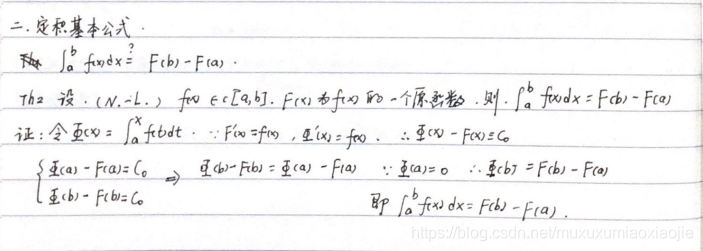 二.定积基本公式.
∫_a^b f(x)dx ≟ F(b)-F(a).
Th2 设.(N.-L.) f(x)∈c[a,b]. F(x)为f(x)的一个原函数.则.∫_a^b f(x)dx=F(b)-F(a)
证:令Φ(x)=∫_a^x f(t)dt. ∵F'(x)=f(x), Φ'(x)=f(x). ∴Φ(x)-F(x)≡C₀
{Φ(a)-F(a)=C₀ ⇒ Φ(b)-F(b)=Φ(a)-F(a) ∵Φ(a)=0 ∴Φ(b)=F(b)-F(a)
Φ(b)-F(b)=C₀ 即∫_a^b f(x)dx=F(b)-F(a).
https://blog.csdn.net/muxuxumiaoxiaojie